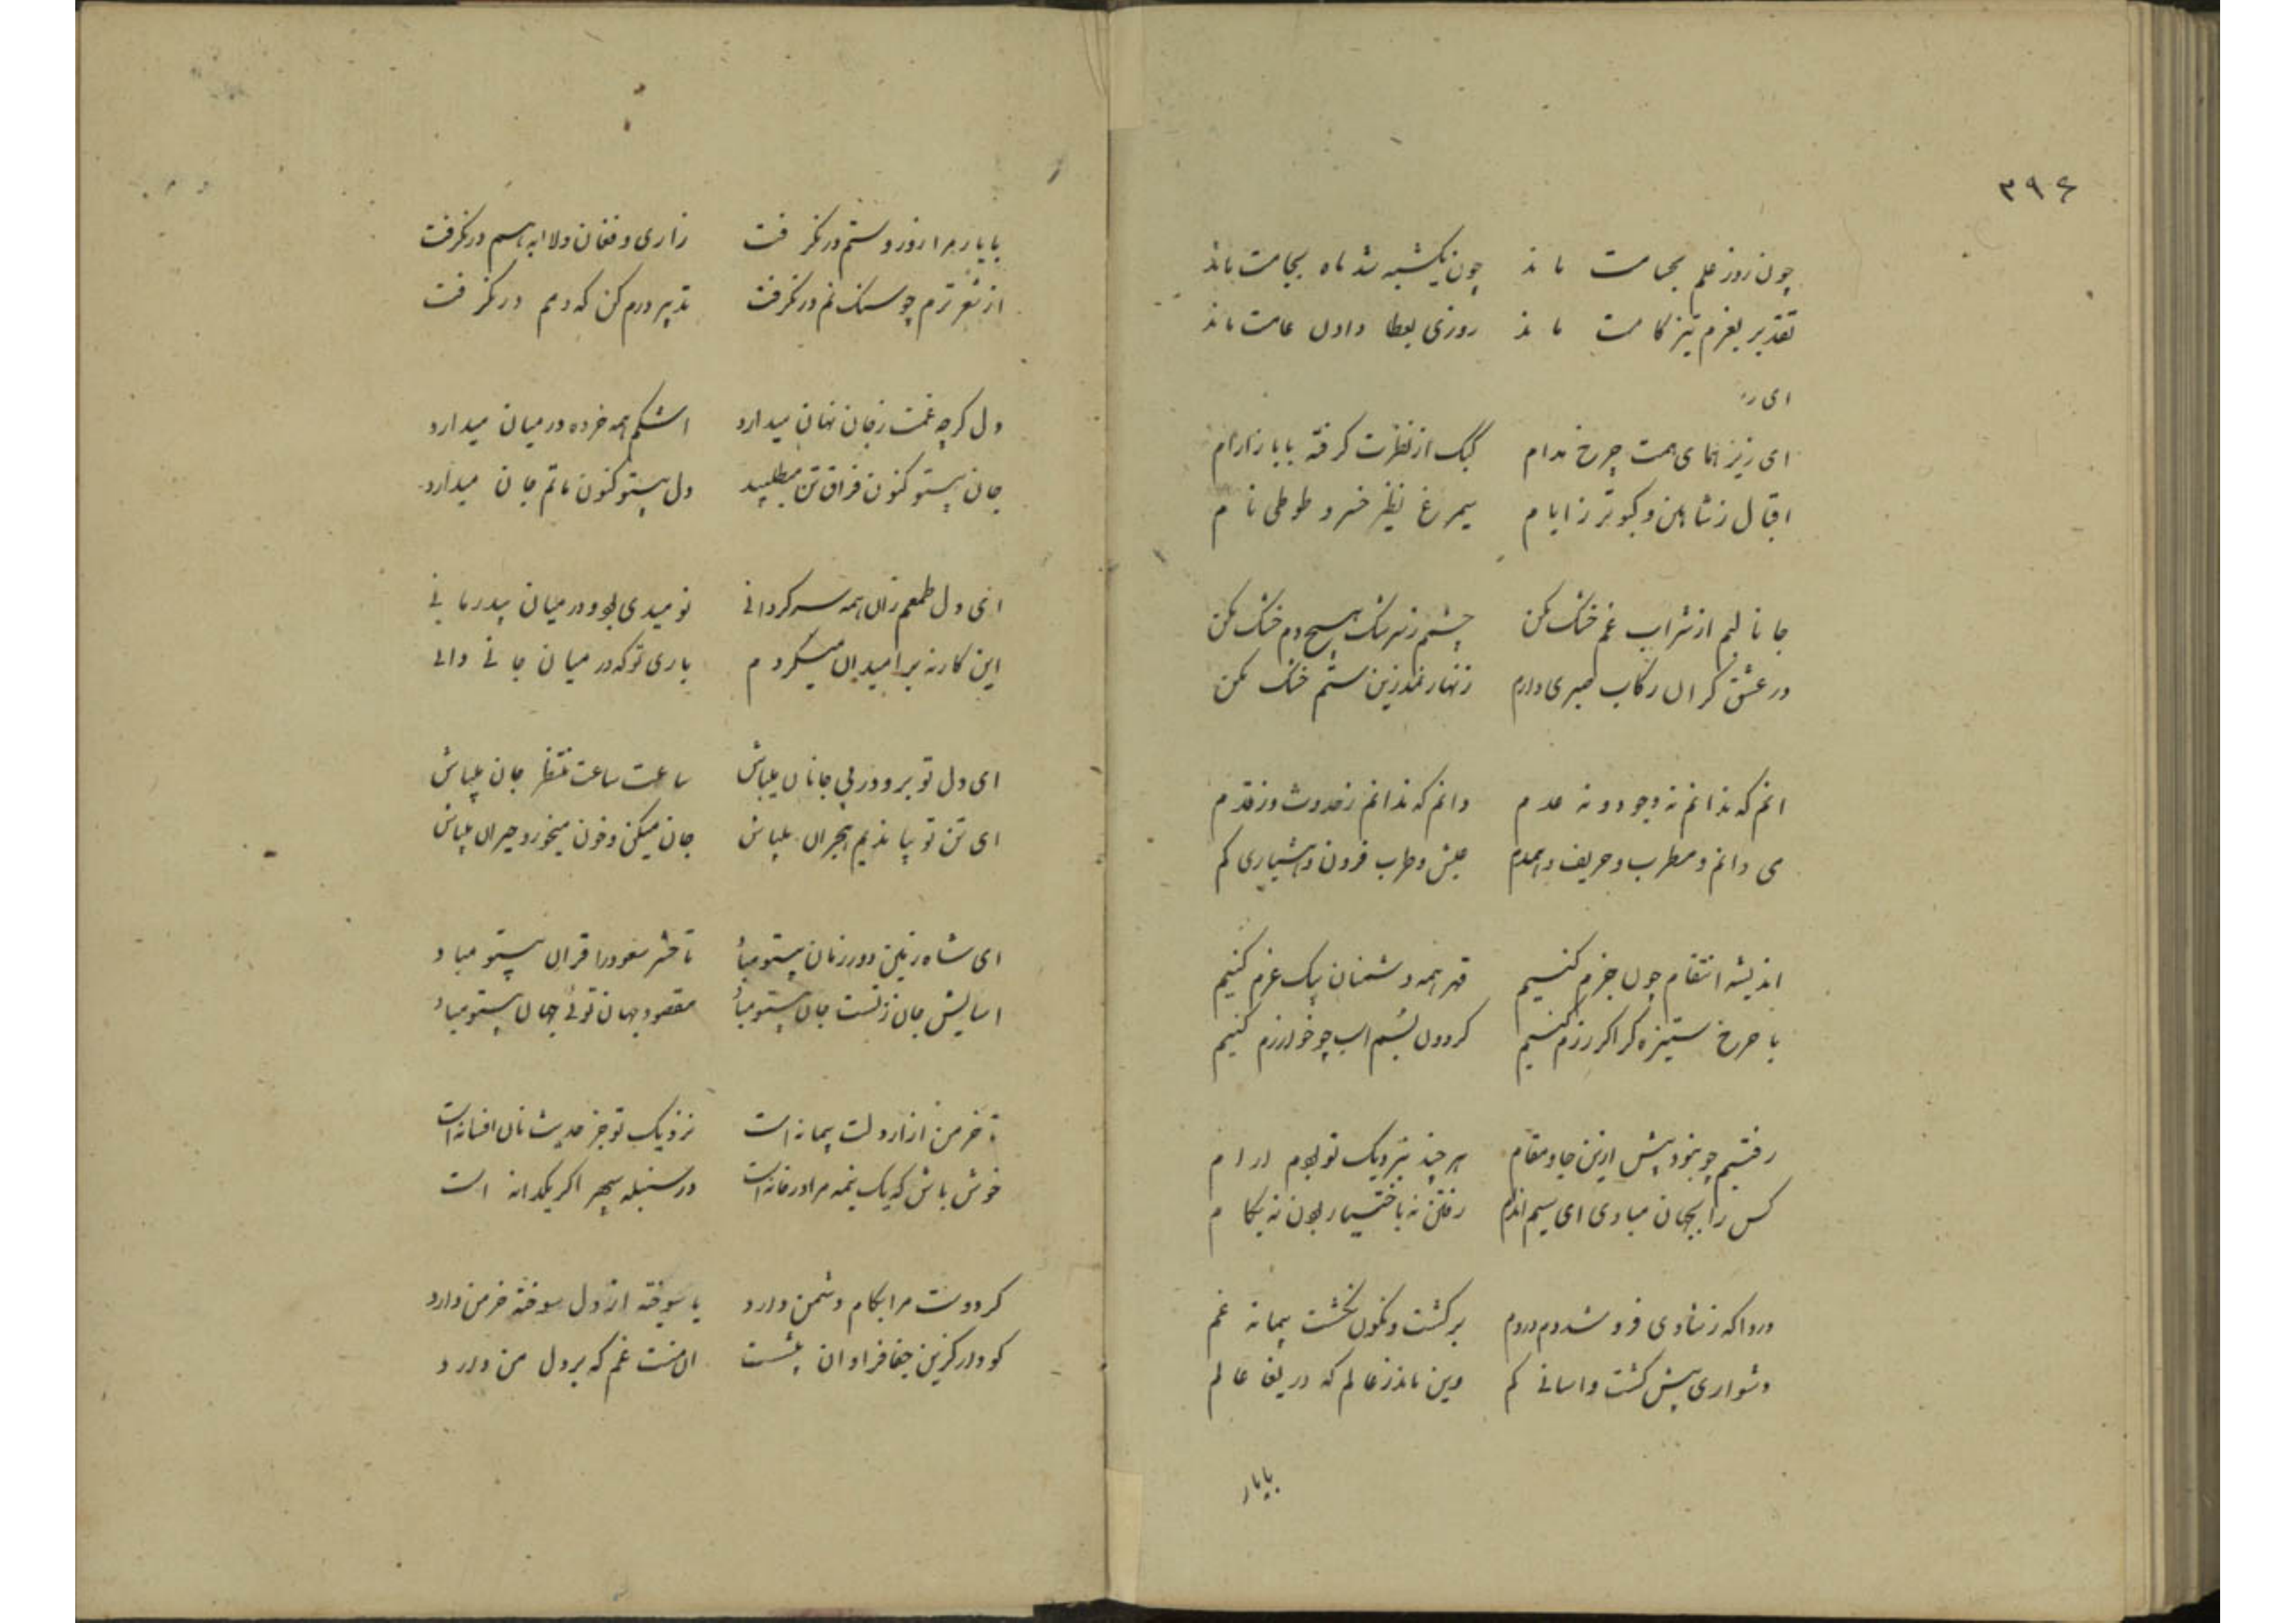 ۳۹۶
چون روز علم بجامت ماند چون یکشبه شد ماه بجامت ماند
تقدیر بعزم تیز کامت ماند روزی بعطا دادن عامت ماند
ای ز
ای زیر همای همت چرخ مدام کبک از نظرت گرفته با باز آرام
اقبال ز شاهین و کبوتر ز ایام سیمرغ نظیر خسرو طوطی نام
جانا لبم از شراب غم خشک مکن چشمم ز سرشک هیچ دم خشک مکن
در عشق گران رکاب صبری دارم زنهار نمد زین ستم خشک مکن
انم که ندانم نه وجود و نه عدم دانم که ندانم ز حدوث و ز قدم
می دانم و مطرب و حریف و همدم عیش و طرب فزون و هشیاری کم
اندیشه انتقام چون جزم کنیم قهر همه دشمنان بیک عزم کنیم
با چرخ ستیزه گر اگر رزم کنیم گردون بسم اسب چو خوارزم کنیم
رفتیم چو نبود بیش ازین جا و مقام هر چند بنزدیک تو بودم ارام
کس را بجهان مبادی ای سیم اندام رفتن نه باختیار بودن نه بکام
دردا که ز شادی فرو شد دم دردم برگشت و نگون نگشت پیمانه غم
دشواری بیش گشت و اسانی کم وین ماند ز عالم که دریغا عالم
بایار
با یار مرا زور و ستم در نگرفت زاری و فغان و لابه هم در نگرفت
از شعر ترم چو سنگ نم در نگرفت تدبیر درم کن که دمم در نگرفت
دل گرچه غمت ز جان نهان میدارد اشکم همه خرده در میان میدارد
جان بیتو کنون فراق تن میطلبد دل بیتو کنون ماتم جان میدارد
ای دل طمعم زان همه سرگردانی نومیدی بود و درد بیدرمانی
این کار نه بر امید ان میکردم باری تو که در میان جانی دانی
ای دل تو برو در پی جانان میباش ساعت ساعت منتظر جان میباش
ای تن تو بیا ندیم هجران میباش جان میکن و خون میخور و حیران میباش
ای شاه زمین دور زمان بیتو مباد تا حشر سعود را قران بیتو مباد
اسایش جان ز تست جان بیتو مباد مقصود جهان توئی جهان بیتو مباد
تا خرمن ازار دلت پیمانه است نزدیک تو جز حدیث نان افسانه است
خوش باش که یک نیمه مرا در خانه است در سنبله سپهر اگر یکدانه است
گر دوست مرا بکام دشمن دارد یا سوخته از دل سوخته خرمن دارد
گو دار کزین جفا فراوان بیشست ان منت غم که بر دل من دارد